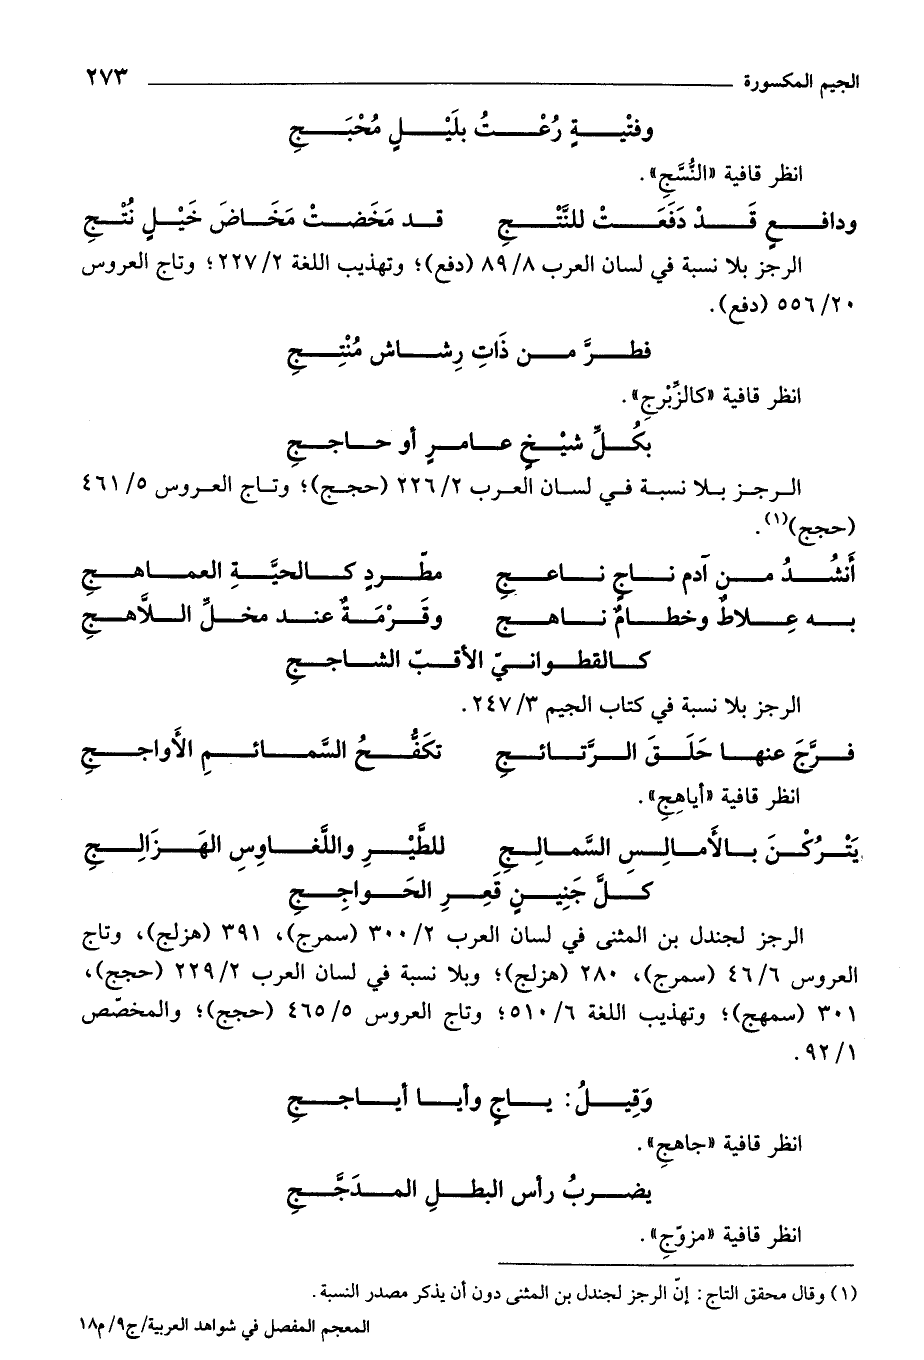 الجيم المكسورة ٢٧٣
وفتْيةٍ رُعْتُ بلَيْلٍ مُحْبَجِ
انظر قافية «النُّسَّجِ».
ودافعٍ قَدْ دَفَعَتْ للنَّتْجِ قد مَخَضتْ مَخَاضَ خَيْلٍ نُتْجِ
الرجز بلا نسبة في لسان العرب ٨/ ٨٩ (دفع)؛ وتهذيب اللغة ٢/ ٢٢٧؛ وتاج العروس
٢٠/ ٥٥٦ (دفع).
فطرَّ من ذَاتِ رِشاش مُنْتِجِ
انظر قافية «كالزِّبْرِجِ».
بكُلِّ شيْخٍ عامرٍ أو حاججِ
الرجز بلا نسبة في لسان العرب ٢/ ٢٢٦ (حجج)؛ وتاج العروس ٥/ ٤٦١
(حجج)(١).
أَنشُدُ من آدم ناجٍ ناعجِ مطّردٍ كالحيَّةِ العماهجِ
به عِلاطٌ وخطامٌ ناهجِ وقَرْمَةٌ عند مخلِّ اللاَّهجِ
كالقطوانيّ الأقبّ الشاججِ
الرجز بلا نسبة في كتاب الجيم ٣/ ٢٤٧.
فرَّجَ عنها حَلَقَ الرَّتائجِ تكَفُّحُ السَّمائمِ الأَواججِ
انظر قافية «أياهِجِ».
يَتْرُكْنَ بالأَمالِسِ السَّمالجِ للطَّيْرِ واللَّغاوِسِ الهَزَالِجِ
كلَّ جَنِينٍ قَعِرِ الحَواجِجِ
الرجز لجندل بن المثنى في لسان العرب ٢/ ٣٠٠ (سمرج)، ٣٩١ (هزلج)، وتاج
العروس ٦/ ٤٦ (سمرج)، ٢٨٠ (هزلج)؛ وبلا نسبة في لسان العرب ٢/ ٢٢٩ (حجج)،
٣٠١ (سمهج)؛ وتهذيب اللغة ٦/ ٥١٠؛ وتاج العروس ٥/ ٤٦٥ (حجج)؛ والمخصّص
١/ ٩٢.
وَقِيلُ: ياجٍ وأيا أياججِ
انظر قافية «جاهجِ».
يضربُ رأس البطلِ المدَجَّجِ
انظر قافية «مزوّجِ».
(١) وقال محقق التاج: إنّ الرجز لجندل بن المثنى دون أن يذكر مصدر النسبة.
المعجم المفصل في شواهد العربية/ج٩/م١٨